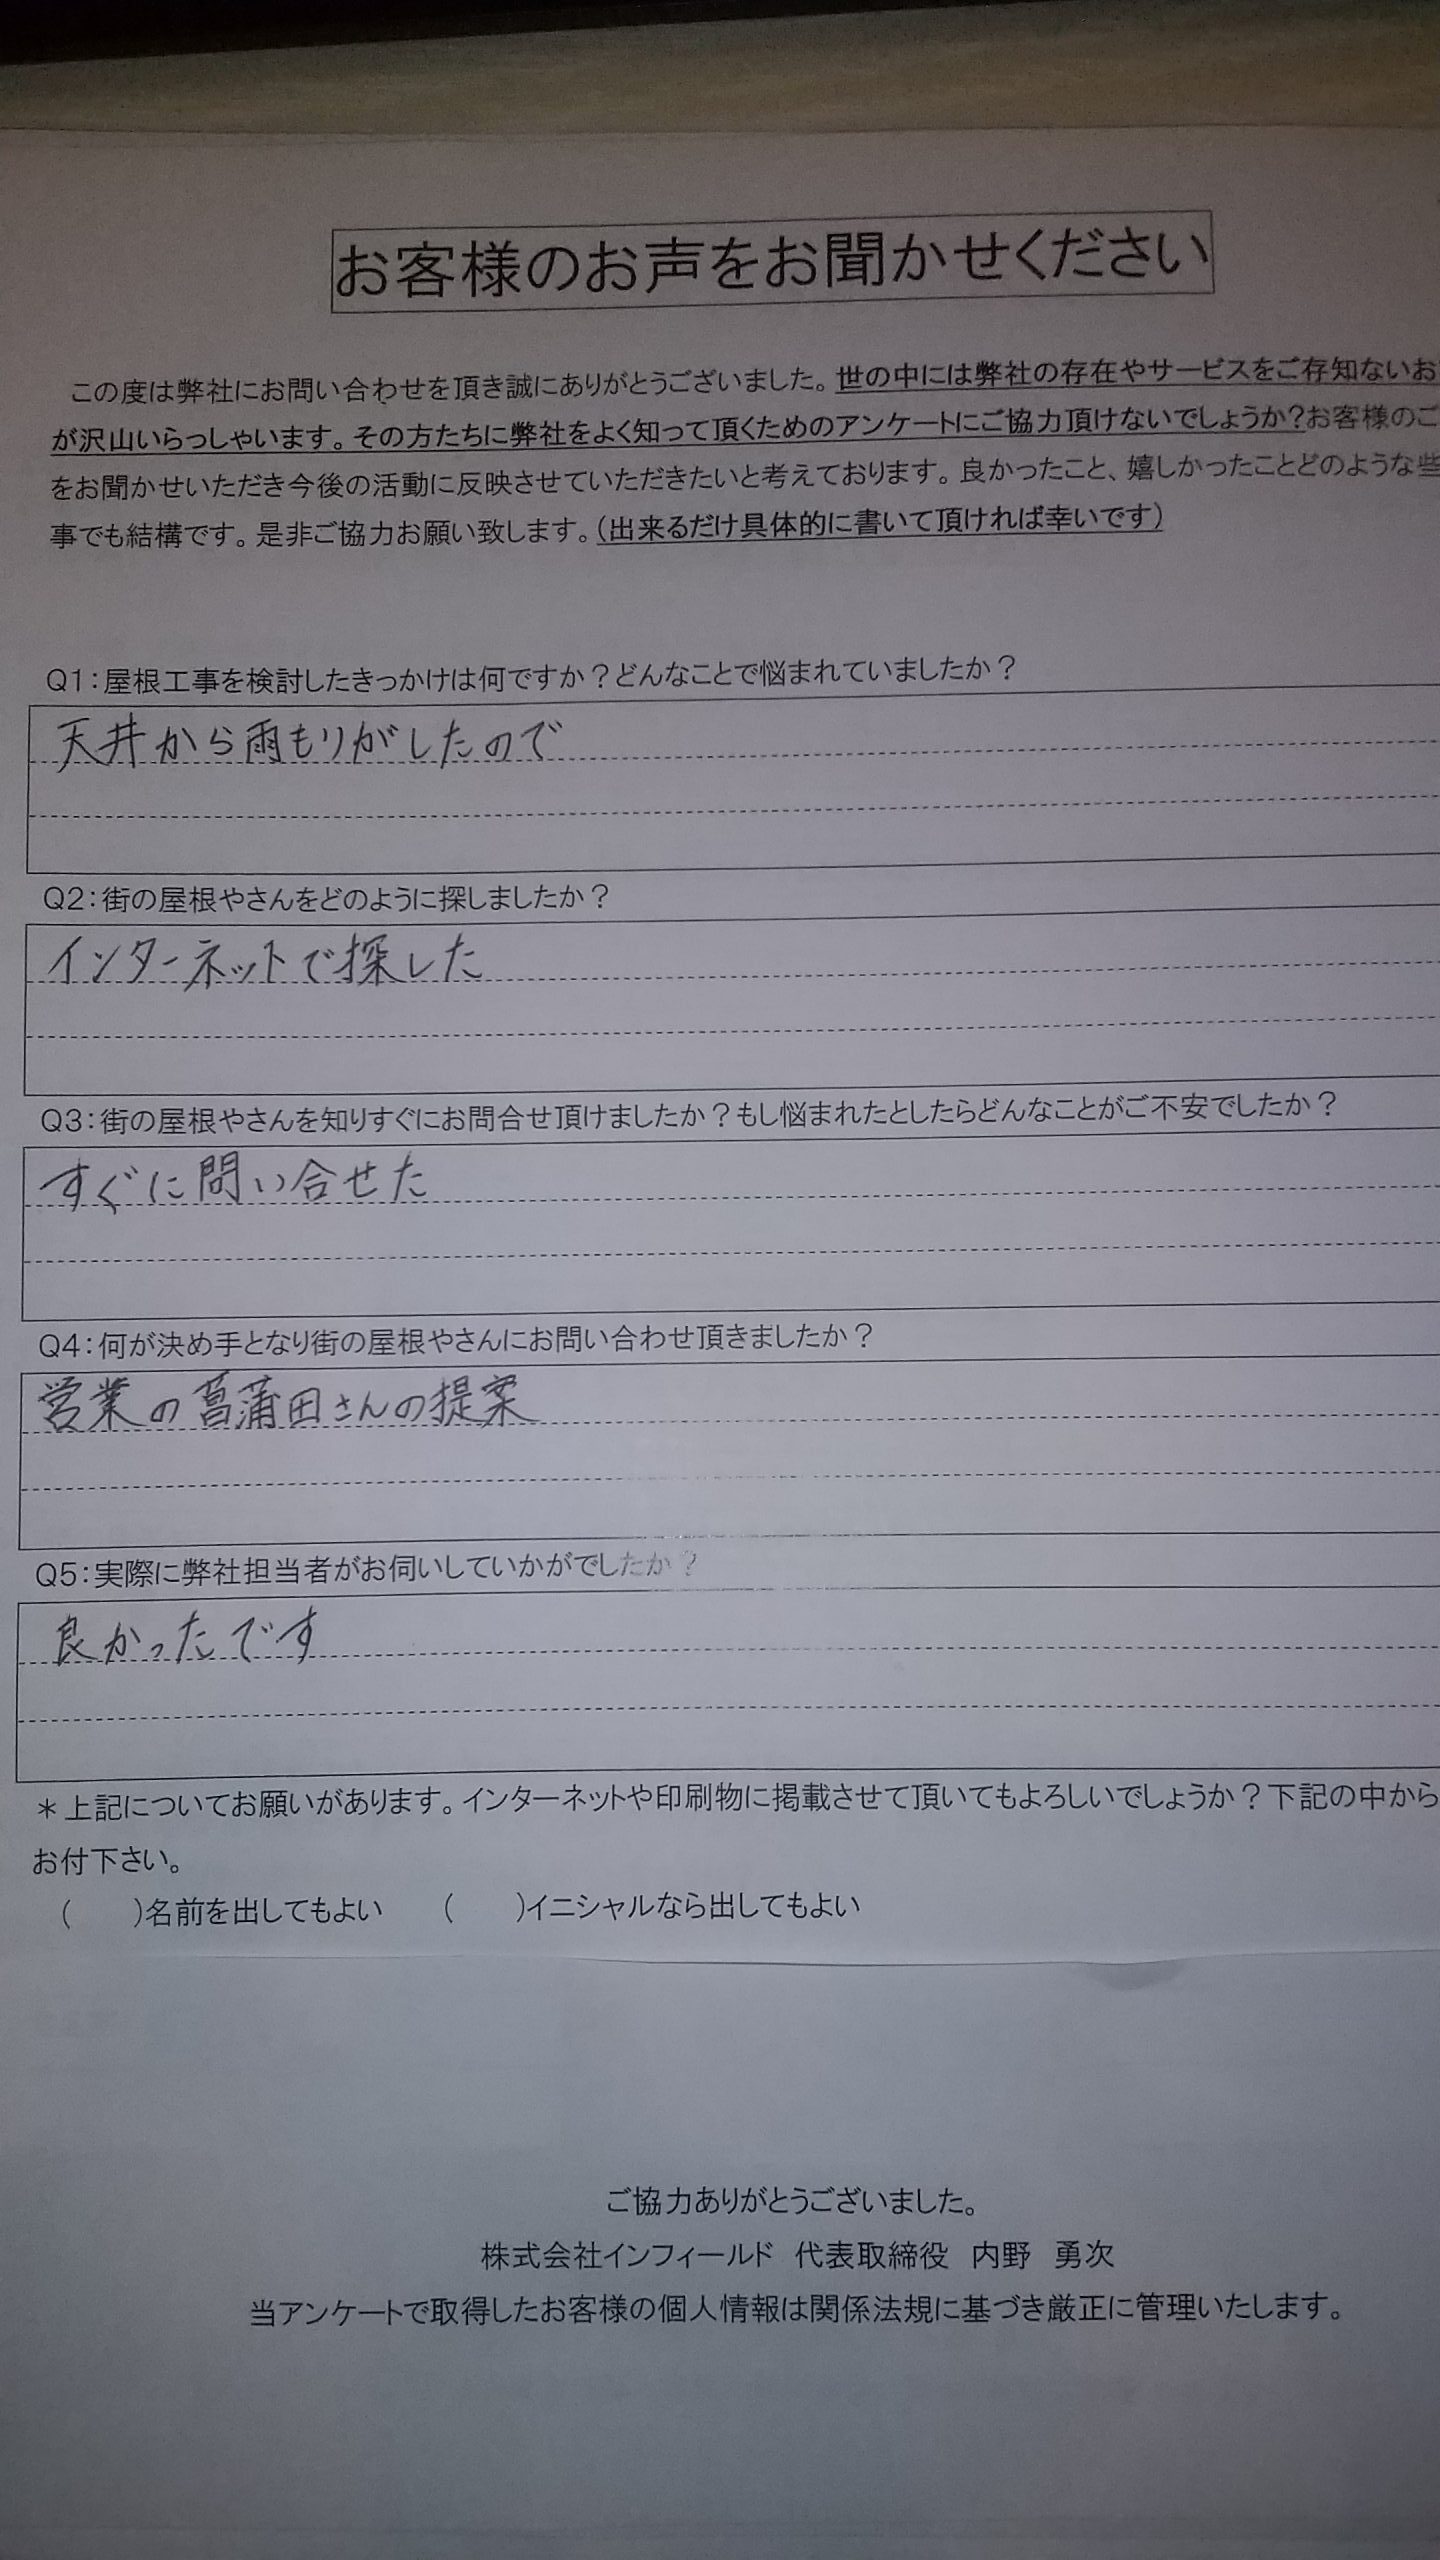 お客様のお声をお聞かせください
この度は弊社にお問い合わせを頂き誠にありがとうございました。世の中には弊社の存在やサービスをご存知ないお
が沢山いらっしゃいます。その方たちに弊社をよく知って頂くためのアンケートにご協力頂けないでしょうか?お客様のご
をお聞かせいただき今後の活動に反映させていただきたいと考えております。良かったこと、嬉しかったことどのような些
事でも結構です。是非ご協力お願い致します。(出来るだけ具体的に書いて頂ければ幸いです)
Q1:屋根工事を検討したきっかけは何ですか?どんなことで悩まれていましたか?
天井から雨もりがしたので
Q2:街の屋根やさんをどのように探しましたか?
インターネットで探した
Q3:街の屋根やさんを知りすぐにお問合せ頂けましたか?もし悩まれたとしたらどんなことがご不安でしたか?
すぐに問い合せた
Q4:何が決め手となり街の屋根やさんにお問い合わせ頂きましたか?
営業の菖蒲田さんの提案
Q5:実際に弊社担当者がお伺いしていかがでしたか?
良かったです
*上記についてお願いがあります。インターネットや印刷物に掲載させて頂いてもよろしいでしょうか?下記の中から
お付下さい。
(　　)名前を出してもよい　　(　　)イニシャルなら出してもよい
ご協力ありがとうございました。
株式会社インフィールド　代表取締役　内野　勇次
当アンケートで取得したお客様の個人情報は関係法規に基づき厳正に管理いたします。